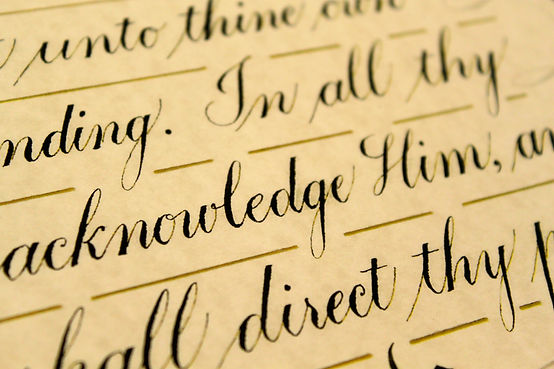 unto thine own
nding. In all thy
acknowledge Him, an
hall direct thy p